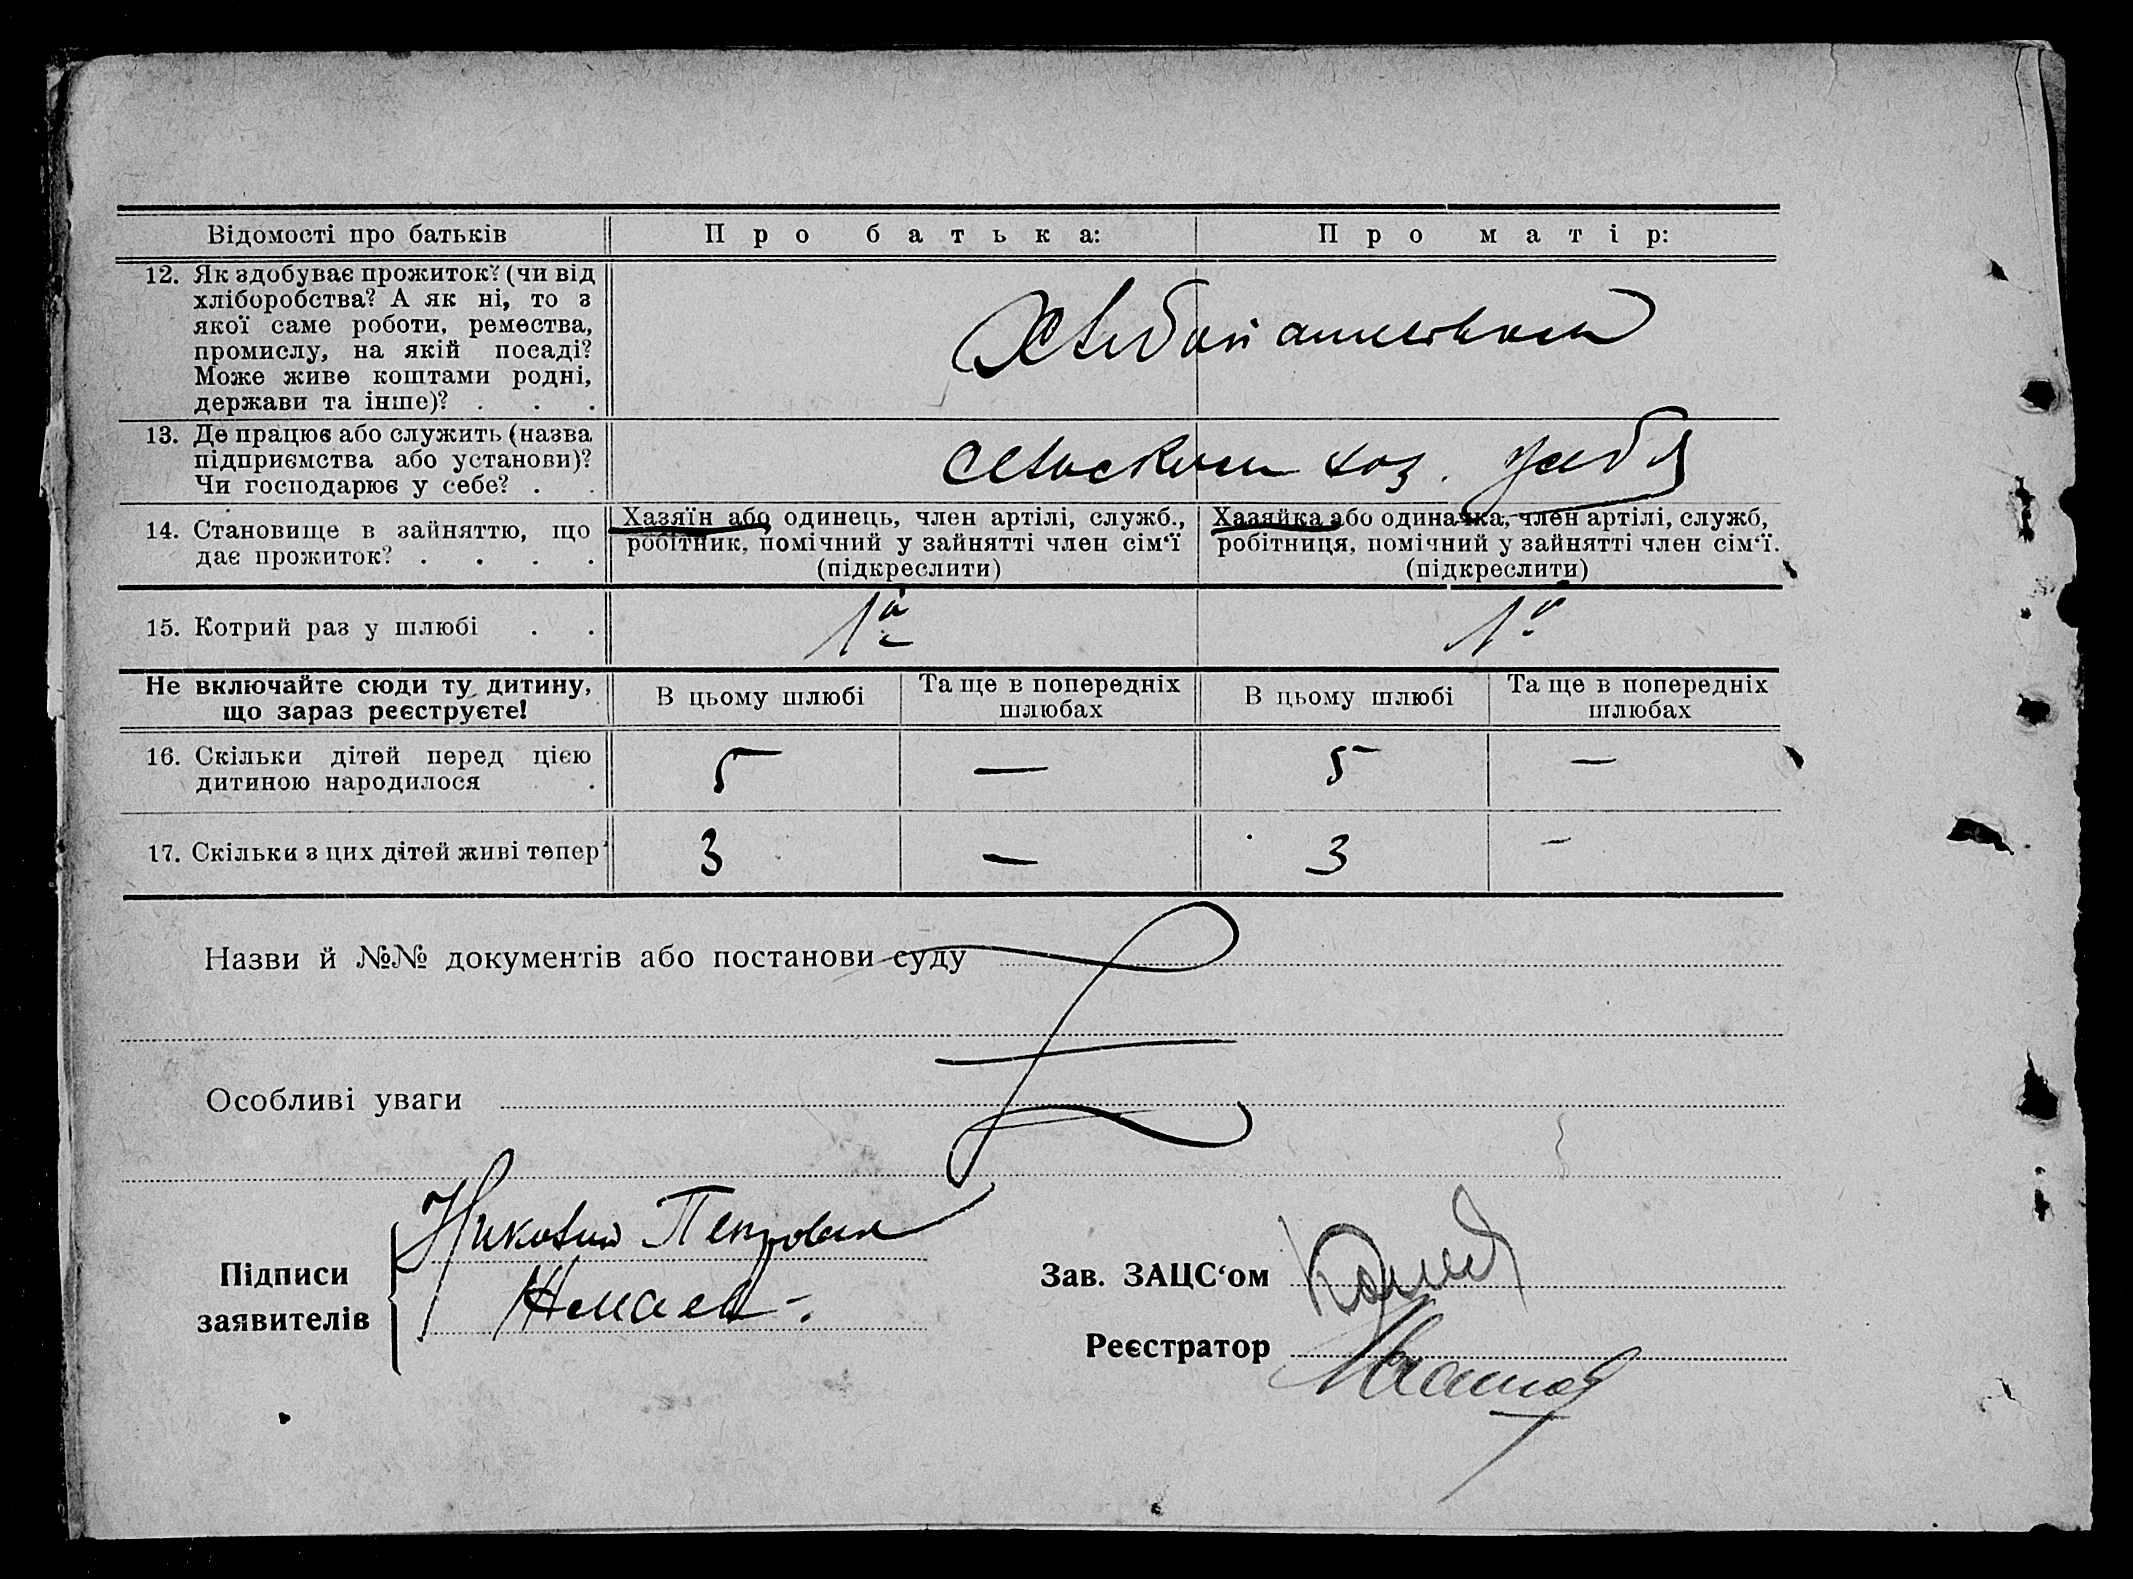 Відомості про батьків
Про батька:
Про матір:
12. Як здобуває прожиток? (чи від
хліборобства? А як ні, то з
якої саме роботи, ремества,
промислу, на якій посаді?
Може живе коштами родні,
держави та інше)? . . .
13. Де працює або служить (назва
підприємства або установи)?
Чи господарює у себе? . .
14. Становище в зайняттю, що
дає прожиток? . . . .
Хазяїн або одинець, член артілі, служб.,
робітник, помічний у зайнятті член сім‘ї
(підкреслити)
Хазяйка або одиначка, член артілі, служб,
робітниця, помічний у зайнятті член сім‘ї.
(підкреслити)
15. Котрий раз у шлюбі . .
1й
1й
Не включайте сюди ту дитину,
що зараз реєструєте!
В цьому шлюбі
Та ще в попередніх
шлюбах
В цьому шлюбі
Та ще в попередніх
шлюбах
16. Скільки дітей перед цією
дитиною народилося .
5 — 5 —
17. Скільки з цих дітей живі тепер?
3 — 3 -
Назви й №№ документів або постанови суду
Особливі уваги
Підписи
заявителів
Зав. ЗАЦС‘ом
Реєстратор